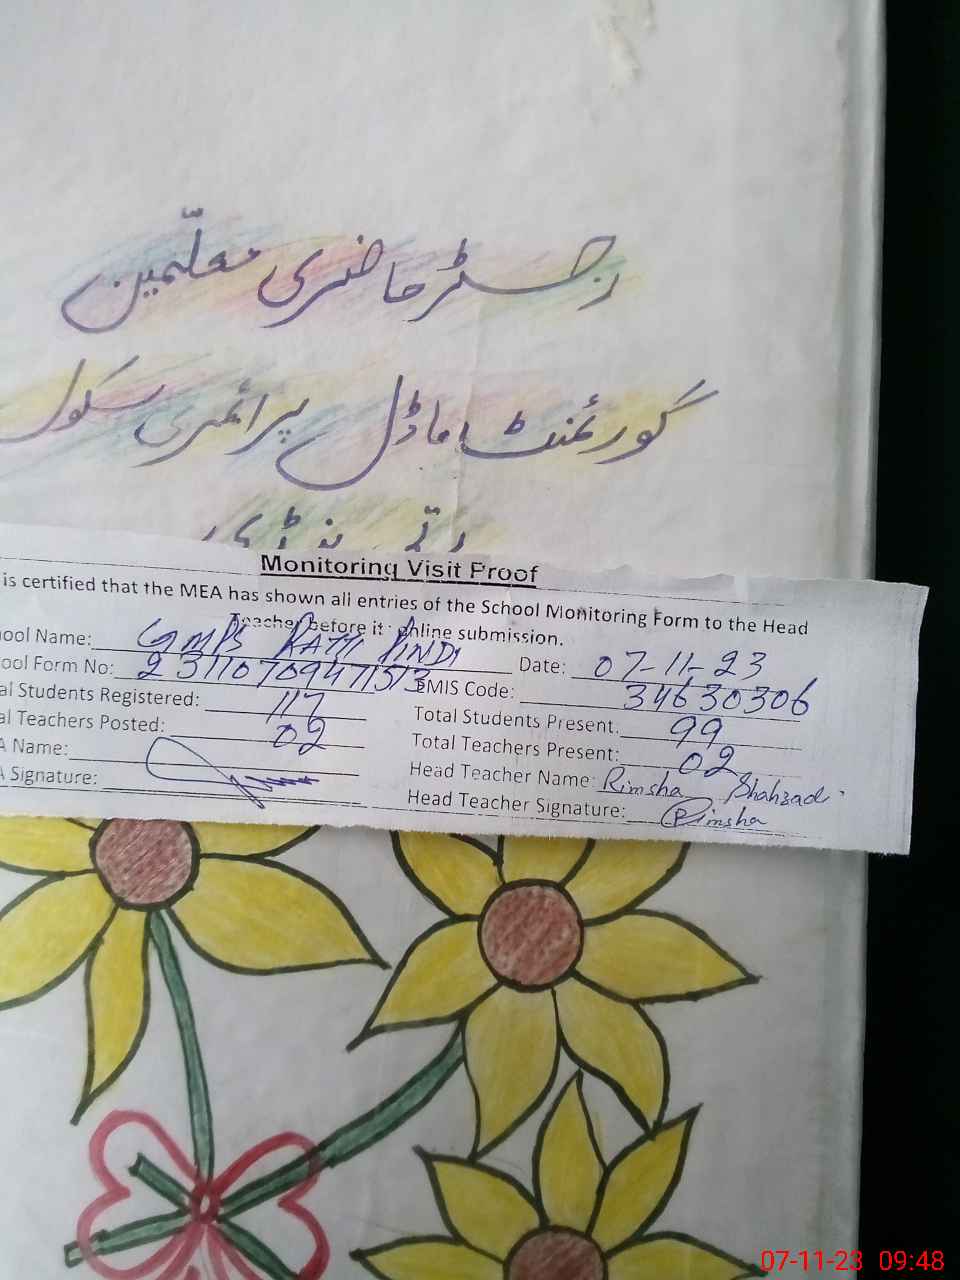 رجسٹر حاضری معلّمین
گورنمنٹ ماڈل پرائمری سکول
رتّہ پنڈی
Monitoring Visit Proof
is certified that the MEA has shown all entries of the School Monitoring Form to the Head
Teacher before it online submission.
ool Name: GMPS RATTA PINDI Date: 07-11-23
ool Form No: EMIS Code: 34630306
al Students Registered: 117 Total Students Present: 99
al Teachers Posted: 02 Total Teachers Present: 02
A Name: Head Teacher Name: Rimsha Shahzadi
A Signature: Head Teacher Signature: Rimsha
07-11-23 09:48